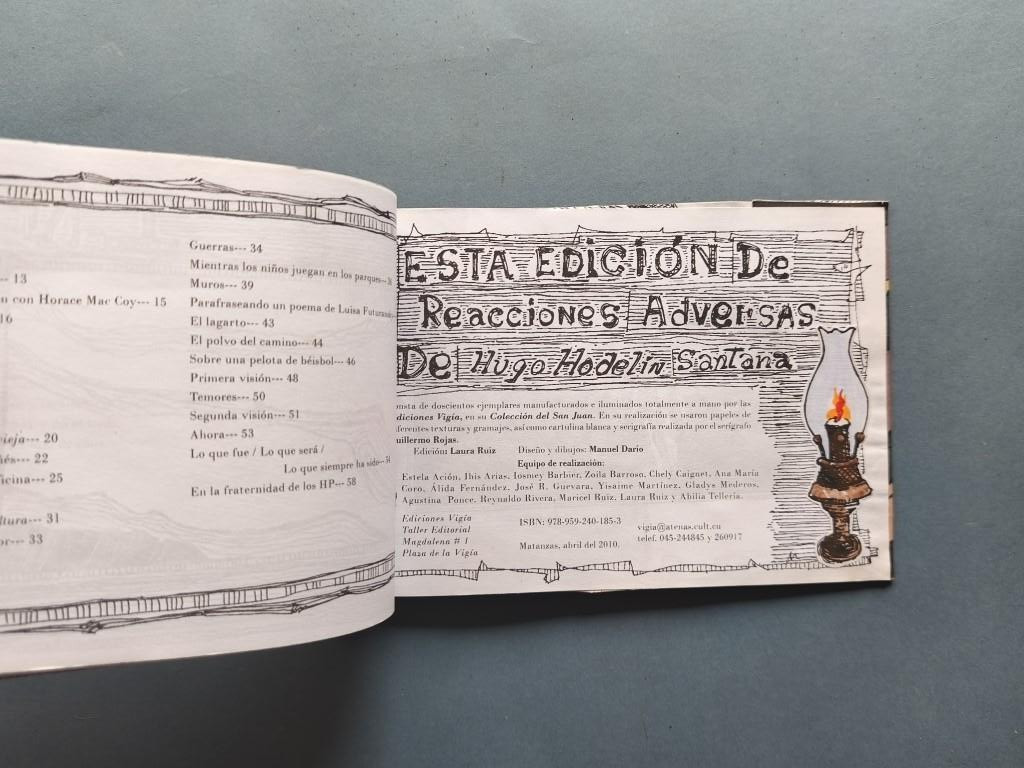 13
con Horace Mac Coy--- 15
16
20
22
25
31
33
Guerras--- 34
Mientras los niños juegan en los parques---
Muros--- 39
Parafraseando un poema de Luisa
El lagarto--- 43
El polvo del camino--- 44
Sobre una pelota de béisbol--- 46
Primera visión--- 48
Temores--- 50
Segunda visión--- 51
Ahora--- 53
Lo que fue / Lo que será /
Lo que siempre ha sido---
En la fraternidad de los HP--- 58
ESTA EDICIÓN De
Reacciones Adversas
De Hugo Hodelín Santana
de doscientos ejemplares manufacturados e iluminados totalmente a mano por las
Vigía, en su Colección del San Juan. En su realización se usaron papeles de
texturas y gramajes, así como cartulina blanca y serigrafía realizada por el serígrafo
Rojas.
Edición: Laura Ruiz Diseño y dibujos: Manuel Darío
Equipo de realización:
Estela Ación, Ibis Arias, Iosmey Barbier, Zoila Barroso, Chely Caignet, Ana María
Coro, Álida Fernández, José R. Guevara, Yisaime Martínez, Gladys Mederos,
Agustina Ponce, Reynaldo Rivera, Maricel Ruiz, Laura Ruiz y Abilia Tellería.
Ediciones Vigía
Taller Editorial
Magdalena # 1
Plaza de la Vigía
ISBN: 978-959-240-185-3
Matanzas, abril del 2010.
vigia@atenas.cult.cu
telef. 045-244845 y 260917